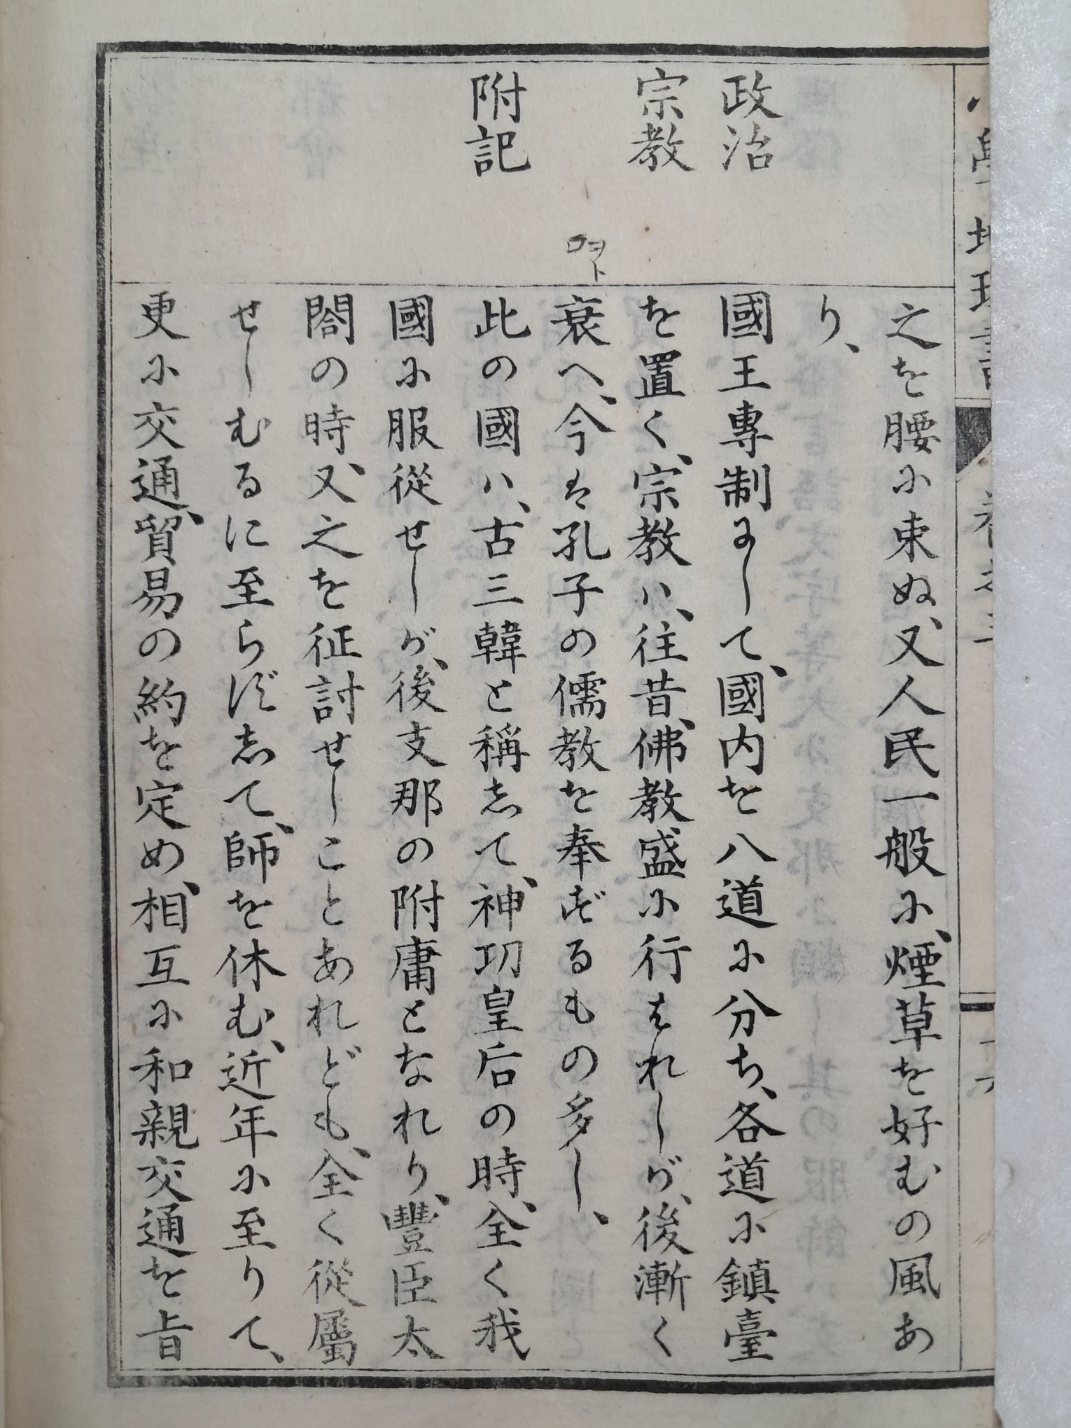 之を腰に束ぬ、又人民一般に、煙草を好むの風あ
り、
政治
國王專制にして、國内を八道に分ち、各道に鎮臺
宗教
を置く、宗教ハ、往昔、佛教盛に行はれしが、後漸く
衰へ、今は孔子の儒教を奉ずるもの多し、
附記
此の國ハ、古三韓と稱して、神功皇后の時、全く我
國に服從せしが、後支那の附庸となれり、豐臣太
閤の時、又之を征討せしことあれども、全く從屬
せしむるに至らずして、師を休む、近年に至りて、
更に交通、貿易の約を定め、相互に和親交通を旨